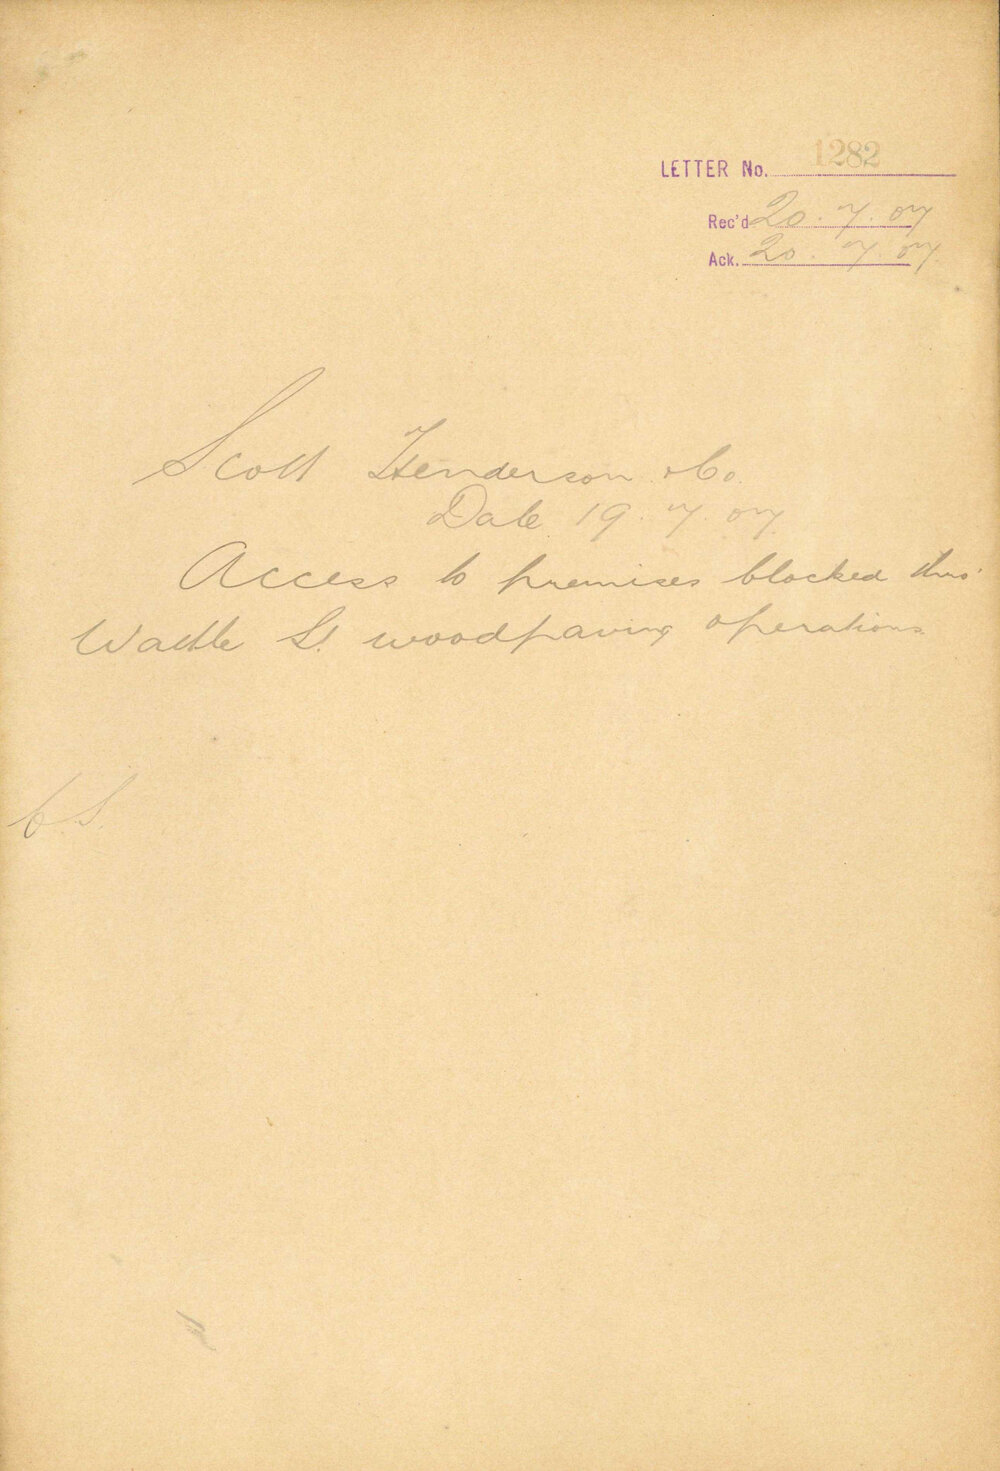 LETTER No. 1282
Rec'd 20.7.07
Ack. 20.7.07
Scott Henderson & Co.
Date 19.7.07
Access to premises blocked thro'
Wattle St. woodpaving operations
C.S.